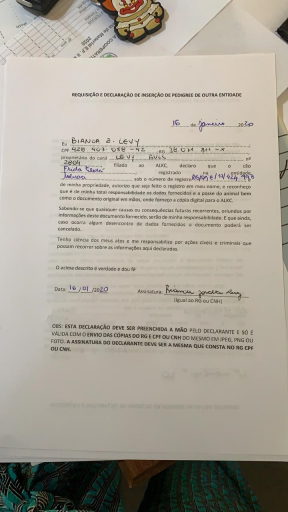 REQUISIÇÃO E DECLARAÇÃO DE INSERÇÃO DE PEDIGREE DE OUTRA ENTIDADE
16 de Janeiro 2020
Eu BIANCA Z. LEVY
CPF 428 407 058-42
proprietário do canil LEVY nº
filiado ao ALKC, declaro que o cão
registrado na entidade
sob o número de registro
de minha propriedade, autorizo que seja feito o registro em meu nome, e reconheço
que é de minha total responsabilidade os dados fornecidos e a posse do animal bem
como o documento original em mãos, onde forneço a cópia digital para a ALKC.
Sabendo-se que quaisquer causas ou consequências futuras recorrentes, oriundas por
informações deste documento fornecido, serão de minha responsabilidade. E que ainda,
caso ocorra algum desencontro de dados fornecidos o documento poderá ser
cancelado.
Tenho ciência dos meus atos e me responsabilizo por ações cíveis e criminais que
possam recorrer sobre as informações aqui declaradas.
O acima descrito é verdade e dou fé
Data: 16/01/2020 Assinatura: Bianca Levy
(Igual ao RG ou CNH)
OBS: ESTA DECLARAÇÃO DEVE SER PREENCHIDA A MÃO PELO DECLARANTE E SÓ É
VÁLIDA COM O ENVIO DAS CÓPIAS DO RG E CPF OU CNH DO MESMO EM JPEG, PNG OU
FOTO. A ASSINATURA DO DECLARANTE DEVE SER A MESMA QUE CONSTA NO RG CPF
OU CNH.